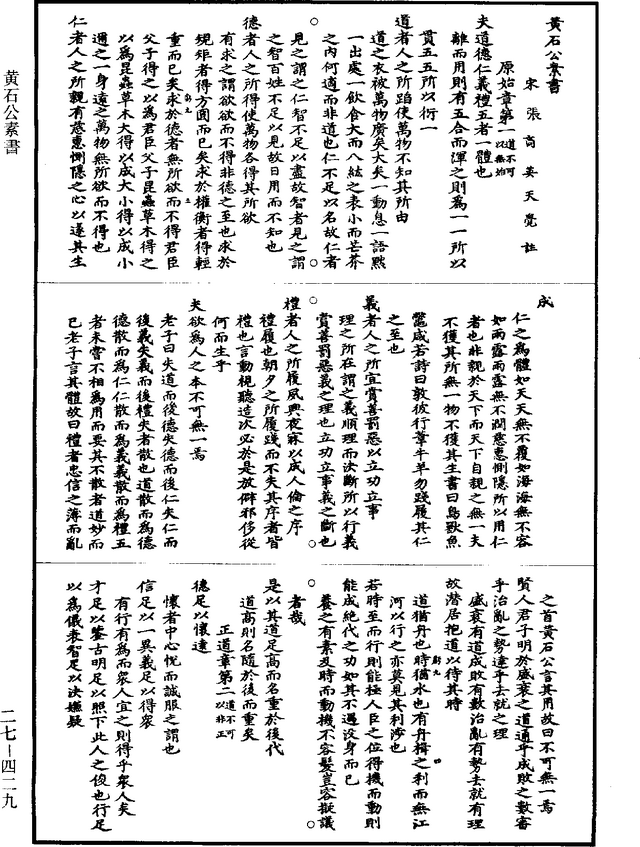 黃石公素書
二七—四二九
黃石公素書
宋 張 商 英 天 覺 註
原始章第一 道不可以無始
夫道德仁義禮五者一體也
離而用則有五合而渾之則爲一一所以
貫五五所以衍一
道者人之所蹈使萬物不知其所由
道之衣被萬物廣矣大矣一動息一語默
一出處一飲食大而八紘之表小而芒芥
之內何適而非道也仁不足以名故仁者
見之謂之仁智不足以盡故智者見之謂
之智百姓不足以見故日用而不知也
德者人之所得使萬物各得其所欲
有求之謂欲欲而不得非德之至也求於
規矩者得方圓而已矣求於權衡者得輕
重而已矣求於德者無所欲而不得君臣
父子得之以爲君臣父子昆蟲草木得之
以爲昆蟲草木大得以成大小得以成小
邇之一身遠之萬物無所欲而不得也
仁者人之所親有慈惠惻隱之心以遂其生
成
仁之爲體如天天無不覆如海海無不容
如雨露雨露無不潤慈惠惻隱所以用仁
者也非親於天下而天下自親之無一夫
不獲其所無一物不獲其生書曰鳥獸魚
鼈咸若詩曰敦彼行葦牛羊勿踐履其仁
之至也
義者人之所宜賞善罰惡以立功立事
理之所在謂之義順理而決斷所以行義
賞善罰惡義之理也立功立事義之斷也
禮者人之所履夙興夜寐以成人倫之序
禮履也朝夕之所履踐而不失其序者皆
禮也言動視聽造次必於是放僻邪侈從
何而生乎
夫欲爲人之本不可無一焉
老子曰失道而後德失德而後仁失仁而
後義失義而後禮失者散也道散而爲德
德散而爲仁仁散而爲義義散而爲禮五
者未嘗不相爲用而要其不散者道妙而
已老子言其體故曰禮者忠信之薄而亂
之首黃石公言其用故曰不可無一焉
賢人君子明於盛衰之道通乎成敗之數審
乎治亂之勢達乎去就之理
盛衰有道成敗有數治亂有勢去就有理
故潛居抱道以待其時
道猶舟也時猶水也有舟楫之利而無江
河以行之亦莫見其利涉也
若時至而行則能極人臣之位得機而動則
能成絕代之功如其不遇沒身而已
養之有素及時而動機不容髮豈容擬議
者哉
是以其道足高而名重於後代
道高則名隨於後而重矣
正道章第二 道不可以非正
德足以懷遠
懷者中心悅而誠服之謂也
信足以一異義足以得衆
有行有爲而衆人宜之則得乎衆人矣
才足以鑒古明足以照下此人之俊也行足
以爲儀表智足以決嫌疑